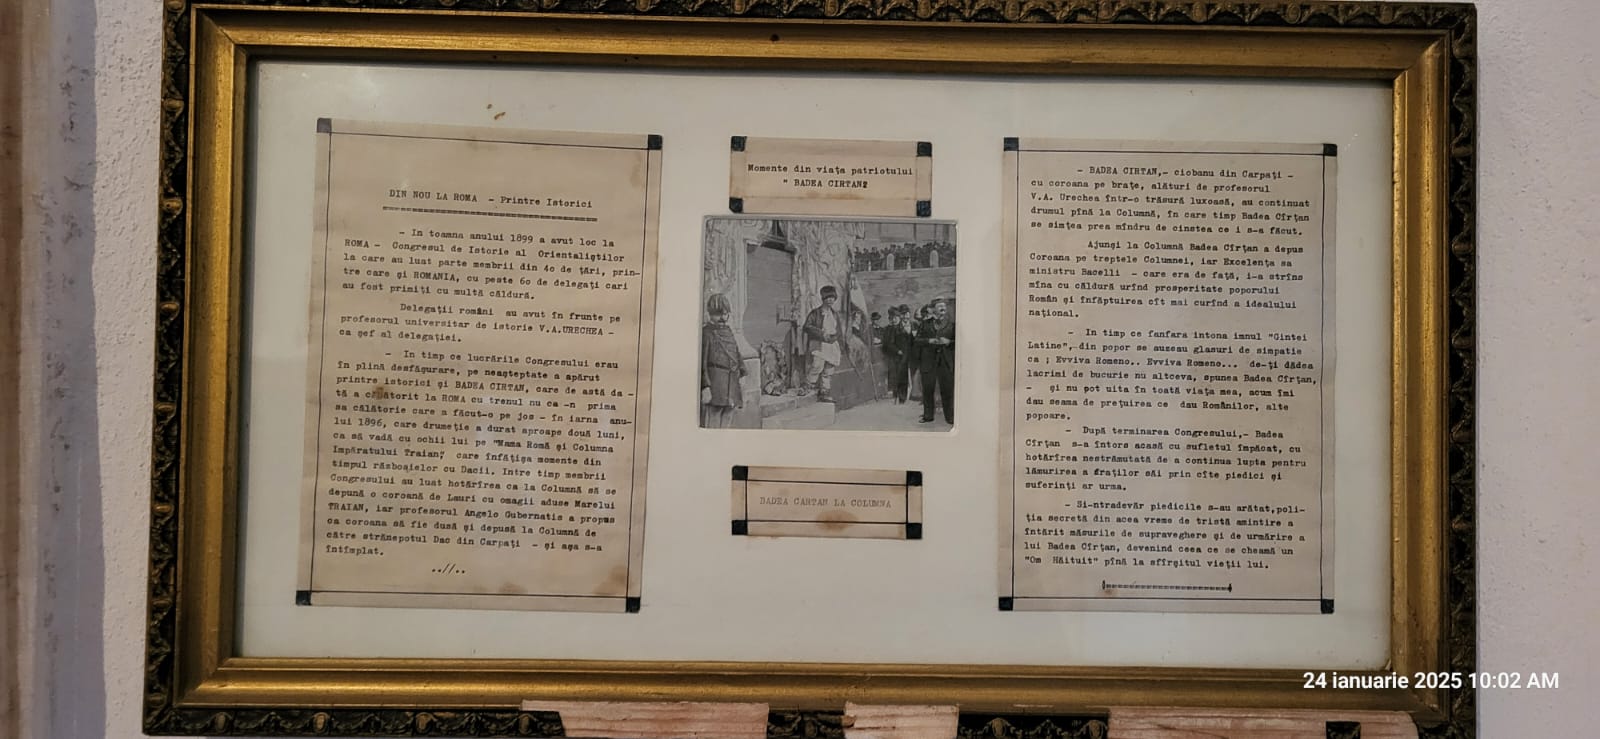 DIN NOU LA ROMA - Printre Istorici
- In toamna anului 1899 a avut loc la
ROMA - Congresul de Istorie al Orientaliştilor
la care au luat parte membrii din 4o de ţări, prin-
tre care şi ROMANIA, cu peste 6o de delegaţi cari
au fost primiţi cu multă căldură.
Delegaţii români au avut în frunte pe
profesorul universitar de istorie V.A.URECHEA -
ca şef al delegaţiei.
- In timp ce lucrările Congresului erau
în plină desfăşurare, pe neaşteptate a apărut
printre istorici şi BADEA CIRTAN, care de astă da -
tă a călătorit la ROMA cu trenul nu ca -n prima
sa călătorie care a făcut-o pe jos - în iarna anu-
lui 1896, care drumeţie a durat aproape două luni,
ca să vadă cu ochii lui pe "Mama Romă şi Columna
Impăratului Traian" care înfăţişa momente din
timpul războaielor cu Dacii. Intre timp membrii
Congresului au luat hotărîrea ca la Columnă să se
depună o coroană de Lauri cu omagii aduse Marelui
TRAIAN, iar profesorul Angelo Gubernatis a propus
ca coroana să fie dusă şi depusă la Columnă de
către strănepotul Dac din Carpaţi - şi aşa s-a
întîmplat.
..//..
Momente din viaţa patriotului
" BADEA CIRTAN"
BADEA CARTAN LA COLUMNA
- BADEA CIRTAN,- ciobanu din Carpaţi -
cu coroana pe braţe, alături de profesorul
V.A. Urechea într-o trăsură luxoasă, au continuat
drumul pînă la Columnă, în care timp Badea Cîrţan
se simţea prea mîndru de cinstea ce i s-a făcut.
Ajunşi la Columnă Badea Cîrţan a depus
Coroana pe treptele Columnei, iar Excelenţa sa
ministru Bacelli - care era de faţă, i-a strîns
mîna cu căldură urînd prosperitate poporului
Român şi înfăptuirea cît mai curînd a idealului
naţional.
- In timp ce fanfara intona imnul "Gintei
Latine",-din popor se auzeau glasuri de simpatie
ca ; Evviva Romeno.. Evviva Romeno... de-ţi dădea
lacrimi de bucurie nu altceva, spunea Badea Cîrţan,
- şi nu pot uita în toată viaţa mea, acum îmi
dau seama de preţuirea ce dau Românilor, alte
popoare.
- După terminarea Congresului,- Badea
Cîrţan s-a întors acasă cu sufletul împăcat, cu
hotărîrea nestrămutată de a continua lupta pentru
lămurirea a fraţilor săi prin cîte piedici şi
suferinţi ar urma.
- Si-ntradevăr piedicile s-au arătat,poli-
ţia secretă din acea vreme de tristă amintire a
întărit măsurile de supraveghere şi de urmărire a
lui Badea Cîrţan, devenind ceea ce se cheamă un
"Om Hăituit" pînă la sfîrşitul vieţii lui.
24 ianuarie 2025 10:02 AM